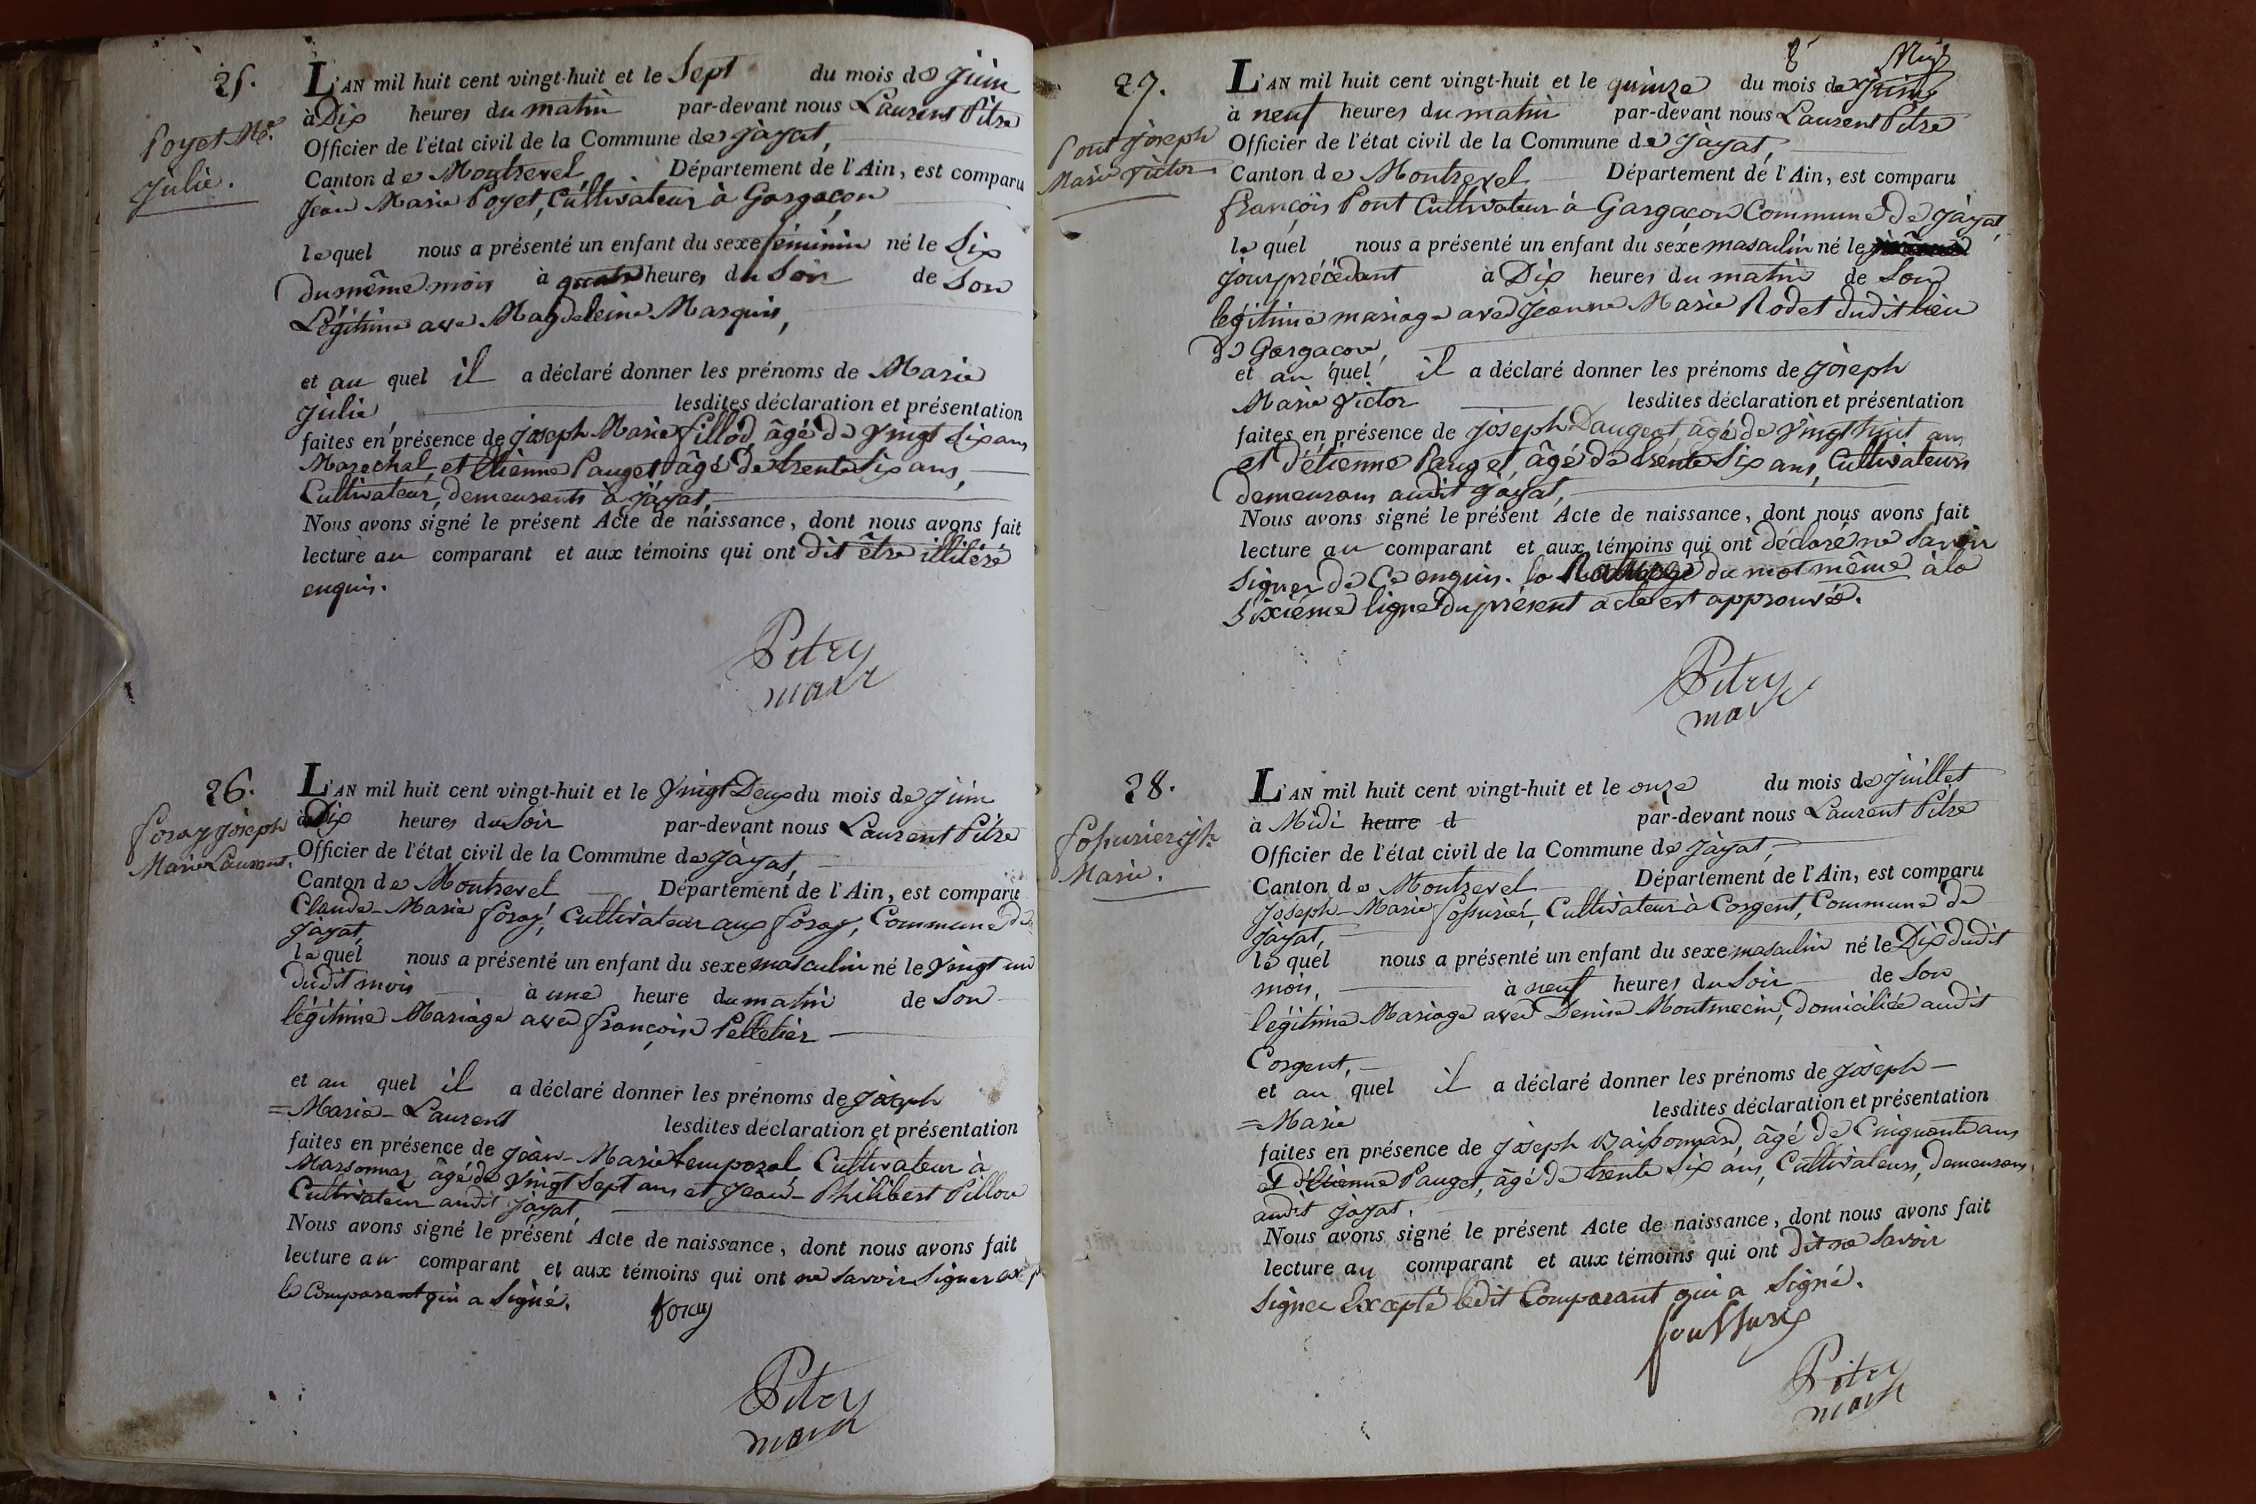 25.
Poyet Mie
Julie.
L'AN mil huit cent vingt-huit et le Sept du mois de Juin
à Dix heures du matin par-devant nous Laurent Pitre
Officier de l'état civil de la Commune de Jayat,
Canton de Montrevel Département de l'Ain, est comparu
Jean Marie Poyet, Cultivateur à Gargaçon
lequel nous a présenté un enfant du sexe féminin né le Six
du même mois à quatre heures du Soir de Son
Légitime avec Magdeleine Marquis,
et au quel il a déclaré donner les prénoms de Marie
Julie lesdites déclaration et présentation
faites en présence de Joseph Marie fillod, âgé de vingt Six ans,
Marechal, et Etienne Pauget âgé de trente Six ans,
Cultivateur, demeurants à Jayat,
Nous avons signé le présent Acte de naissance, dont nous avons fait
lecture au comparant et aux témoins qui ont dit être illitéré
enquis.
Pitry
maire
26.
foray Joseph
Marie Laurent.
L'AN mil huit cent vingt-huit et le vingt Deux du mois de Juin
à Dix heures du Soir par-devant nous Laurent Pitre
Officier de l'état civil de la Commune de Jayat,
Canton de Montrevel Département de l'Ain, est comparu
Claude-Marie foray, Cultivateur aux foray, Commune de
Jayat,
lequel nous a présenté un enfant du sexe masculin né le vingt un
dudit mois à une heure du matin de Son
légitime Mariage avec françoise Pelletier
et au quel il a déclaré donner les prénoms de Joseph
=Marie-Laurent lesdites déclaration et présentation
faites en présence de Jean-Marie temporal Cultivateur à
Marsonnas, âgé de vingt Sept ans et Jean-Philibert Pillou
Cultivateur audit Jayat
Nous avons signé le présent Acte de naissance, dont nous avons fait
lecture au comparant et aux témoins qui ont ne Savoir Signer
le Comparant qui a Signé.
foray
Pitry
maire
27.
Pont Joseph
Marie Victor
8 Mai
L'AN mil huit cent vingt-huit et le quinze du mois de Juin
à neuf heures du matin par-devant nous Laurent Pitre
Officier de l'état civil de la Commune de Jayat,
Canton de Montrevel Département de l'Ain, est comparu
françois Pont Cultivateur à Gargaçon Commune de Jayat,
lequel nous a présenté un enfant du sexe masculin né le
jour précédant à Dix heures du matin de Son
légitime mariage avec Jeanne Marie Rodet dudit lieu
de Gargacon,
et au quel il a déclaré donner les prénoms de Joseph
Marie Victor lesdites déclaration et présentation
faites en présence de Joseph Daugent, âgé de vingt huit ans
et d'étienne Pauget, âgé de trente Six ans, Cultivateurs
demeurans audit Jayat,
Nous avons signé le présent Acte de naissance, dont nous avons fait
lecture au comparant et aux témoins qui ont déclaré ne Savoir
Signer de Ce enquis. la Rature du mot même à la
Sixiéme ligne du présent acte est approuvée.
Pitry
maire
28.
fossurier jh
Marie.
L'AN mil huit cent vingt-huit et le onze du mois de Juillet
à Midi heure d par-devant nous Laurent Pitre
Officier de l'état civil de la Commune de Jayat,
Canton de Montrevel Département de l'Ain, est comparu
Joseph-Marie fossurier, Cultivateur à Corgent, Commune de
Jayat,
lequel nous a présenté un enfant du sexe masculin né le Dix dudit
mois, à neuf heures du Soir de Son
légitime Mariage avec Denise Montmecin, domiciliée audit
Corgent,
et au quel il a déclaré donner les prénoms de Joseph-
=Marie lesdites déclaration et présentation
faites en présence de Joseph Vaisonnard, âgé de Cinquante ans
et d'Etienne Pauget, âgé de trente Six ans, Cultivateurs, demeurans
audit Jayat.
Nous avons signé le présent Acte de naissance, dont nous avons fait
lecture au comparant et aux témoins qui ont dit ne Savoir
Signer Excepté ledit Comparant qui a Signé.
Pitry
maire